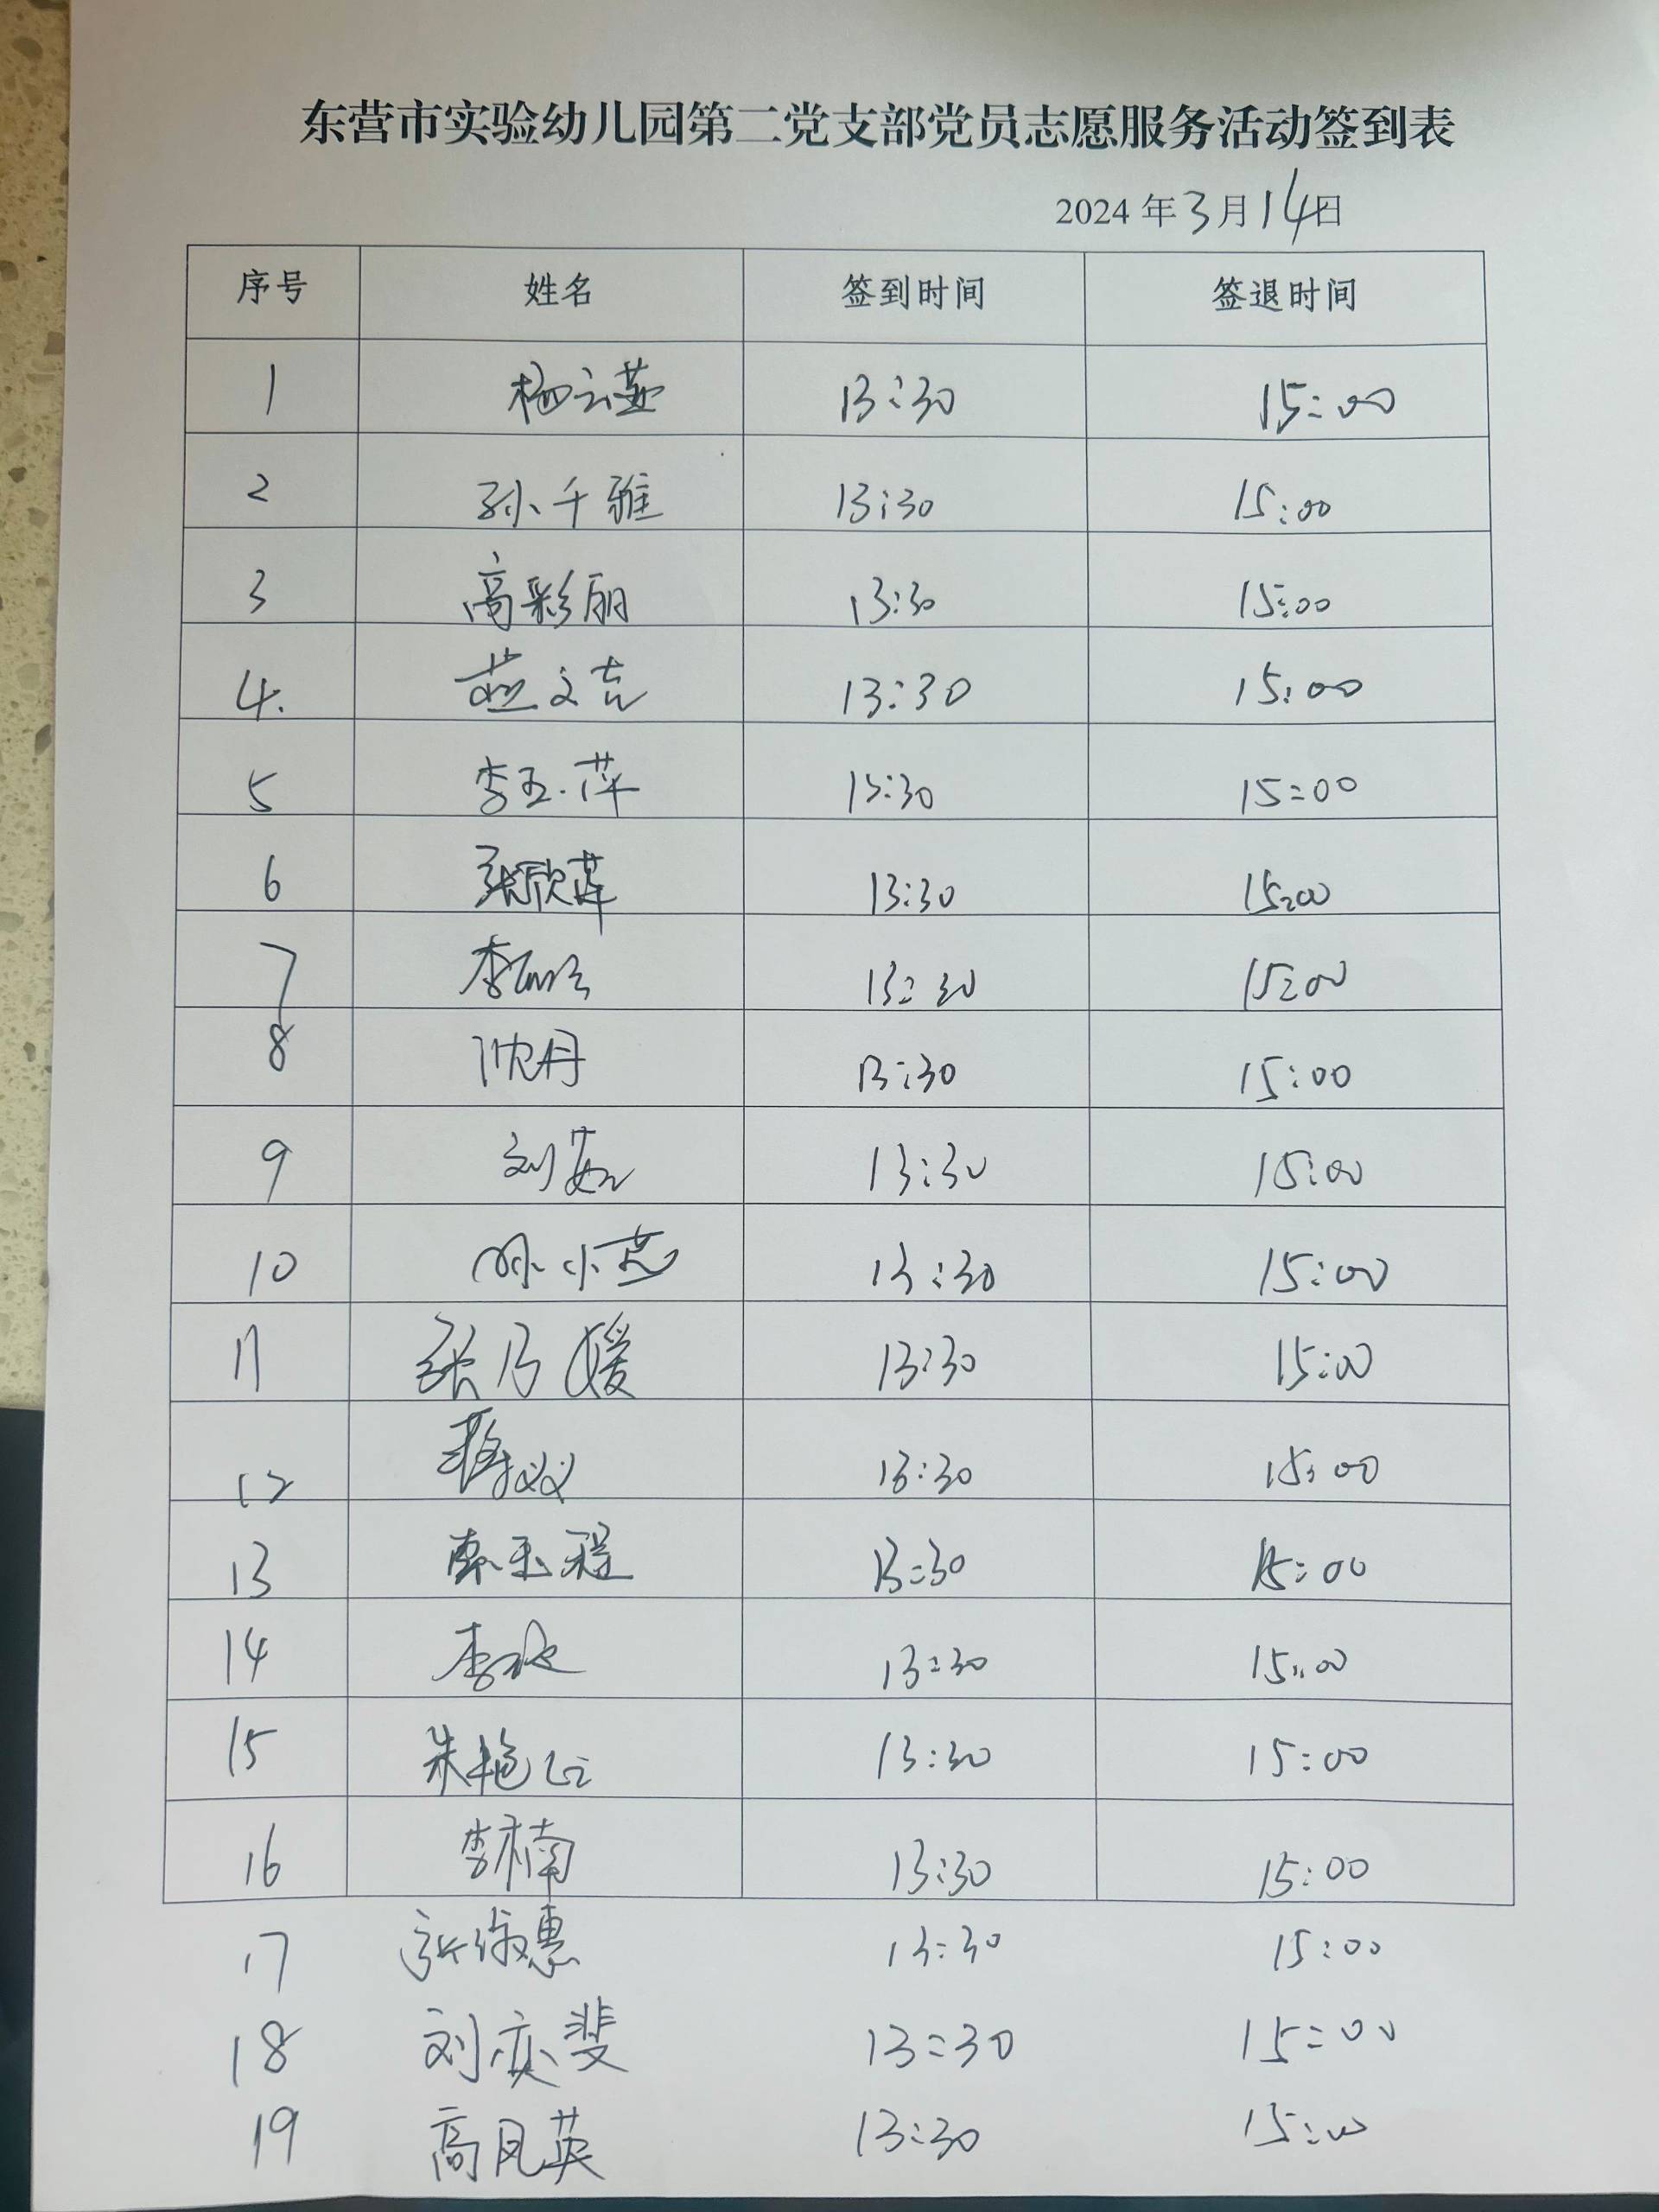 东营市实验幼儿园第二党支部党员志愿服务活动签到表
2024年3月14日
序号 姓名 签到时间 签退时间
1 杨云燕 13:30 15:00
2 孙千雅 13:30 15:00
3 高彩丽 13:30 15:00
4. 燕文吉 13:30 15:00
5 李玉萍 13:30 15:00
6 张欣萍 13:30 15:00
7 李 13:30 15:00
8 沈丹 13:30 15:00
9 刘茹 13:30 15:00
10 孙小燕 13:30 15:00
11 张乃媛 13:30 15:00
12 蒋双 13:30 15:00
13 玉程 13:30 15:00
14 李 13:30 15:00
15 朱艳 13:30 15:00
16 李楠 13:30 15:00
17 张淑惠 13:30 15:00
18 刘亦斐 13:30 15:00
19 高凤英 13:30 15:00